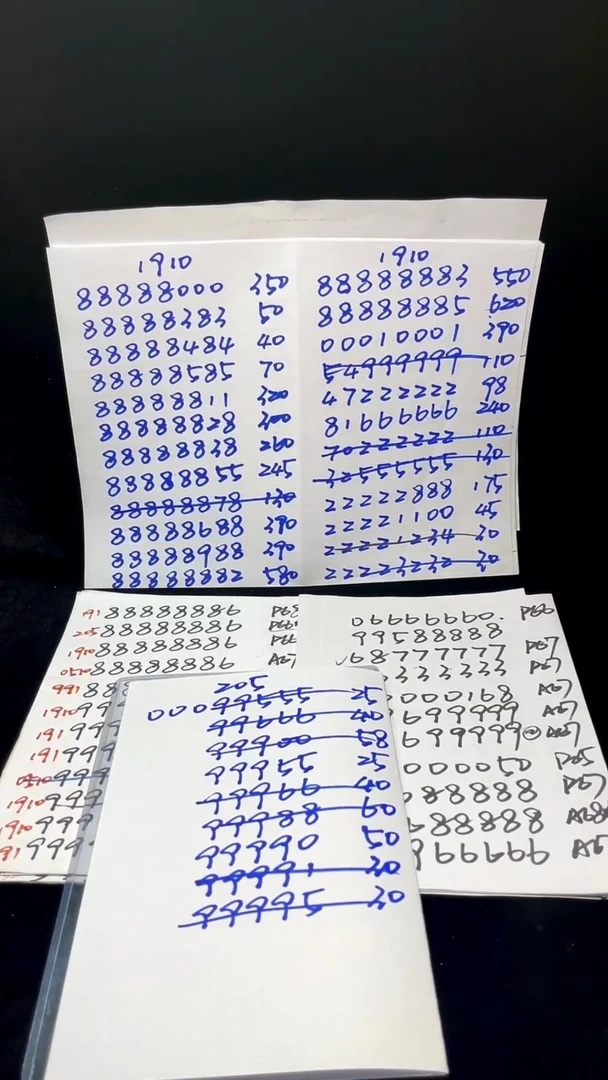 1910
88888000 350
88888383 50
88888484 40
88888585 70
88888811 320
88888828 300
88888838 260
88888855 245
88888878 130
88888688 390
88888988 390
88888882 580
1910
88888883 550
88888885 620
00010001 390
54999999 110
47222222 98
81666666 240
70222222 110
32555555 130
22222888 175
22221100 45
22221234 30
22223232 30
91 88888886
205 88888886
1910 88888886
0510 88888886 A67
991 88
1910 99
191 999
191 999
999
1910 999
1910 999
91 999
06666660. P66
99588888
68777777 P67
333333 P67
000168 A67
699999 A67
699999
000050 P65
88888 P67
88888 A68
99999 A6
205
00099555 25
99666 40
99900 58
99955 25
99966 40
99988 60
99990 50
99991 30
99995 30